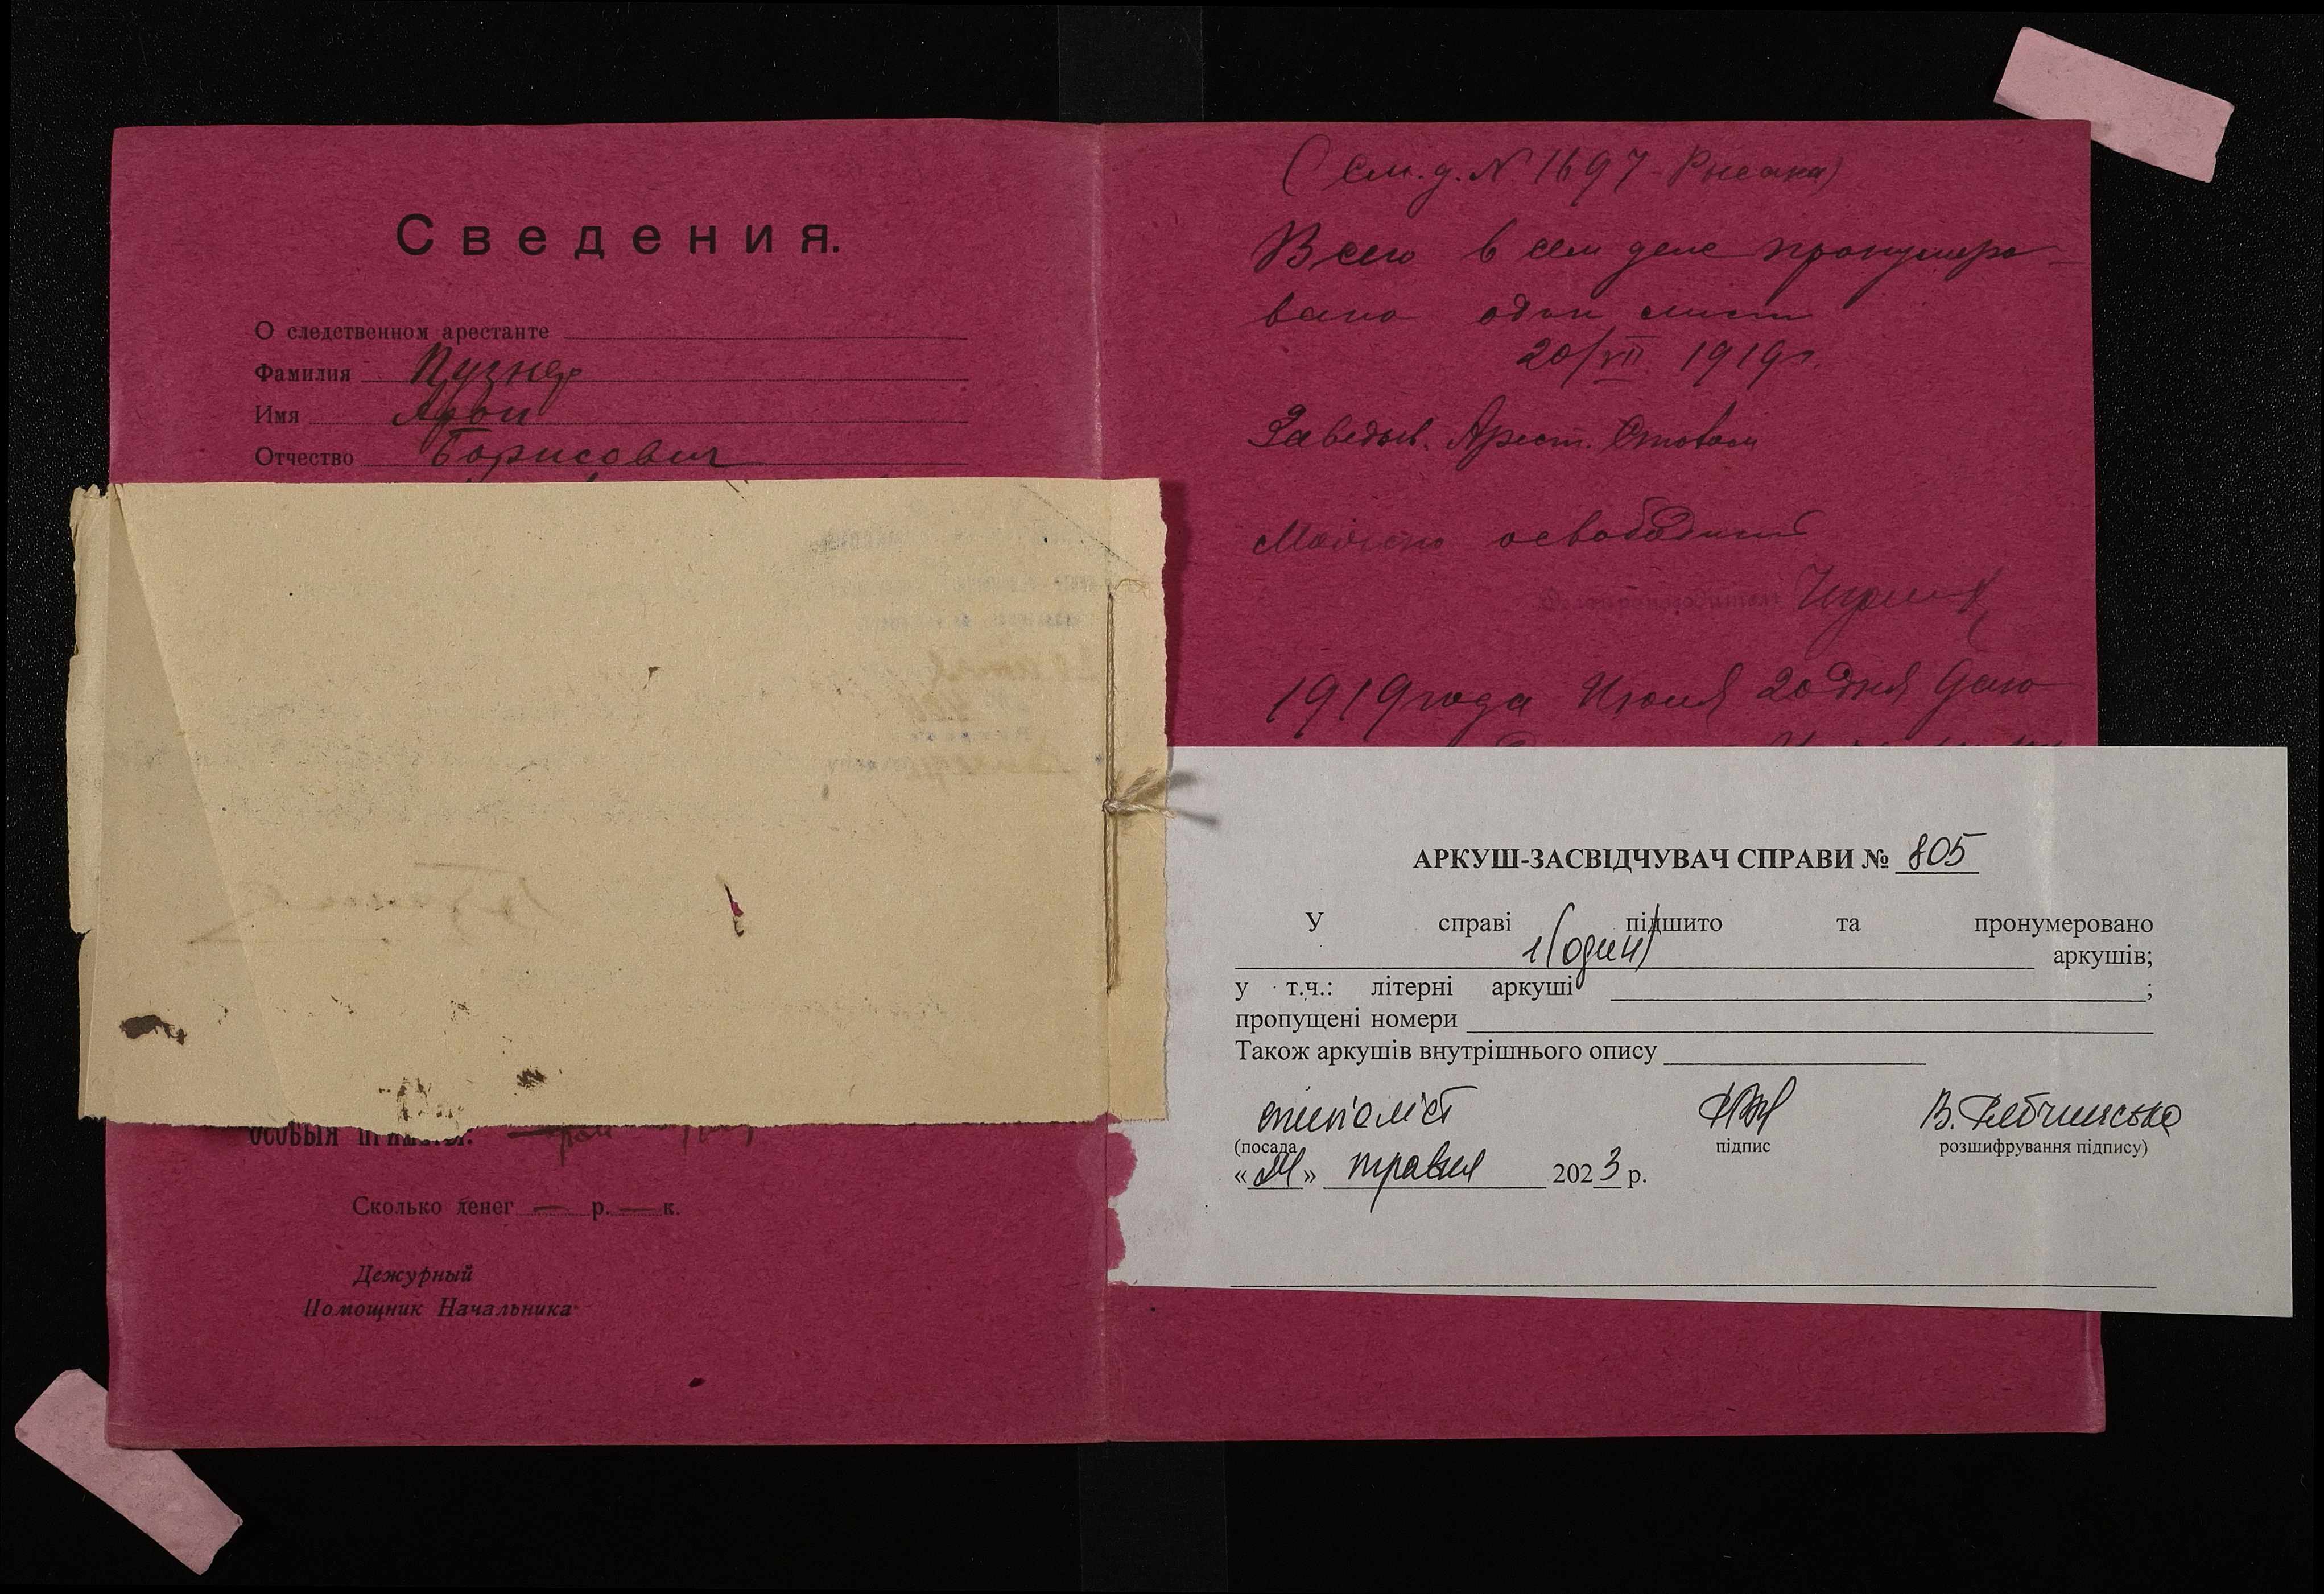 Сведения.
О следственном арестанте
Фамилия Пузнер
Имя Арон
Отчество Борисович
Особыя приметы:
Сколько денег — р. — к.
Дежурный
Помощник Начальника
(См. д. N 1697
Всего в сем деле пронумеро-
вано один лист
20/VII 1919 г.
Заведыв. Арест. Столом
Можно освободить
1919 года Июля 20 дня дело
АРКУШ-ЗАСВІДЧУВАЧ СПРАВИ № 805
У справі підшито та пронумеровано
1 (один) аркушів;
у т.ч.: літерні аркуші ;
пропущені номери
Також аркушів внутрішнього опису
(посада підпис розшифрування підпису)
« » травня 2023 р.